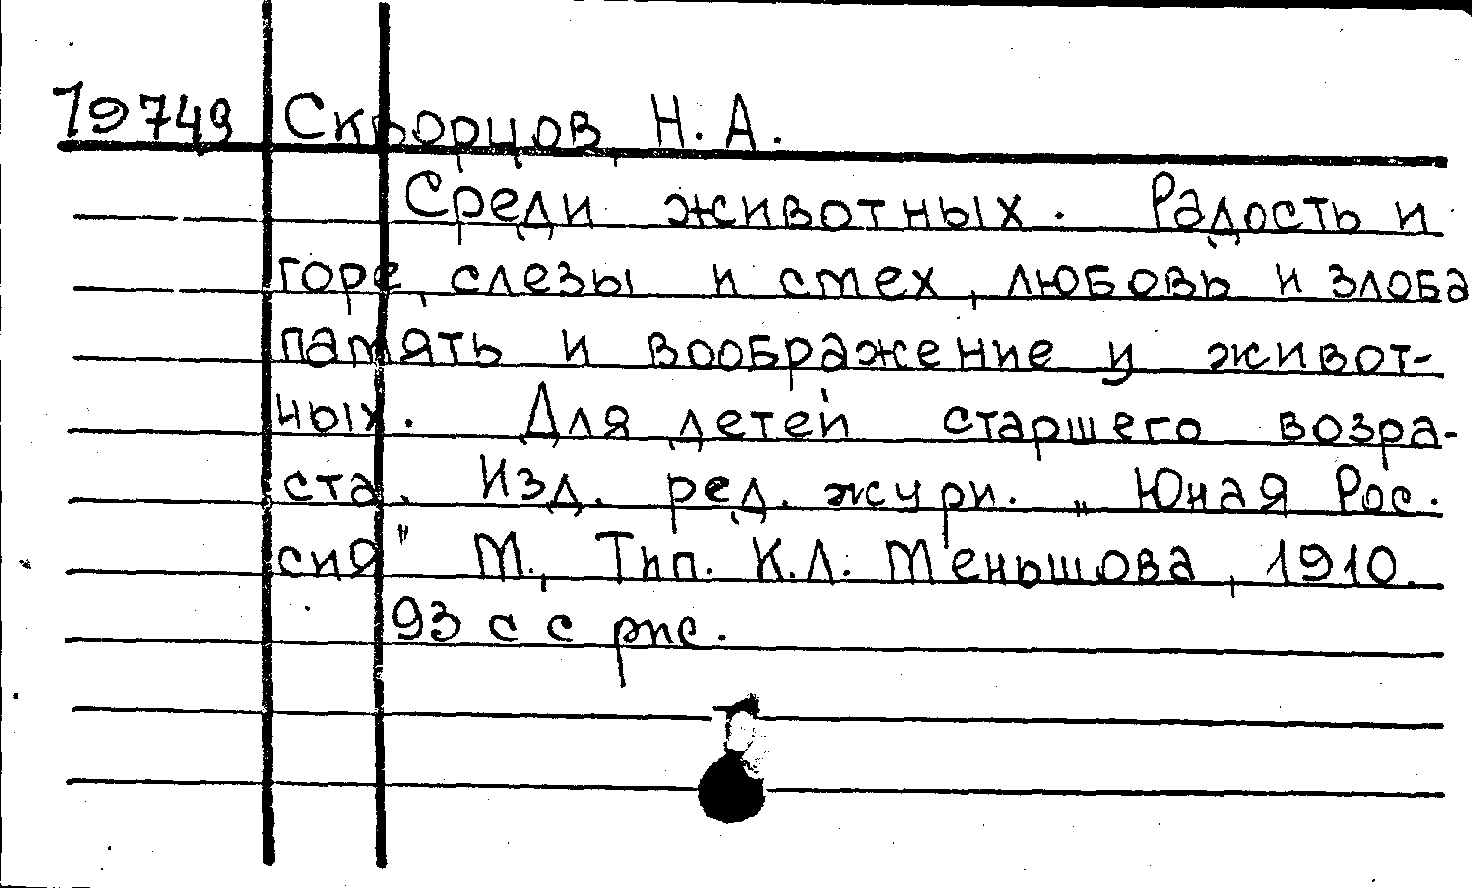 19749 Скворцов, Н. А.
Среди животных. Радость и
горе, слезы и смех, любовь и злоба
память и воображение у живот-
ных. Для детей старшего возра-
ста. Изд. ред. журн. „Юная Рос.
сия" М., Тип. К.Л. Меньшова, 1910.
93 с с рис.